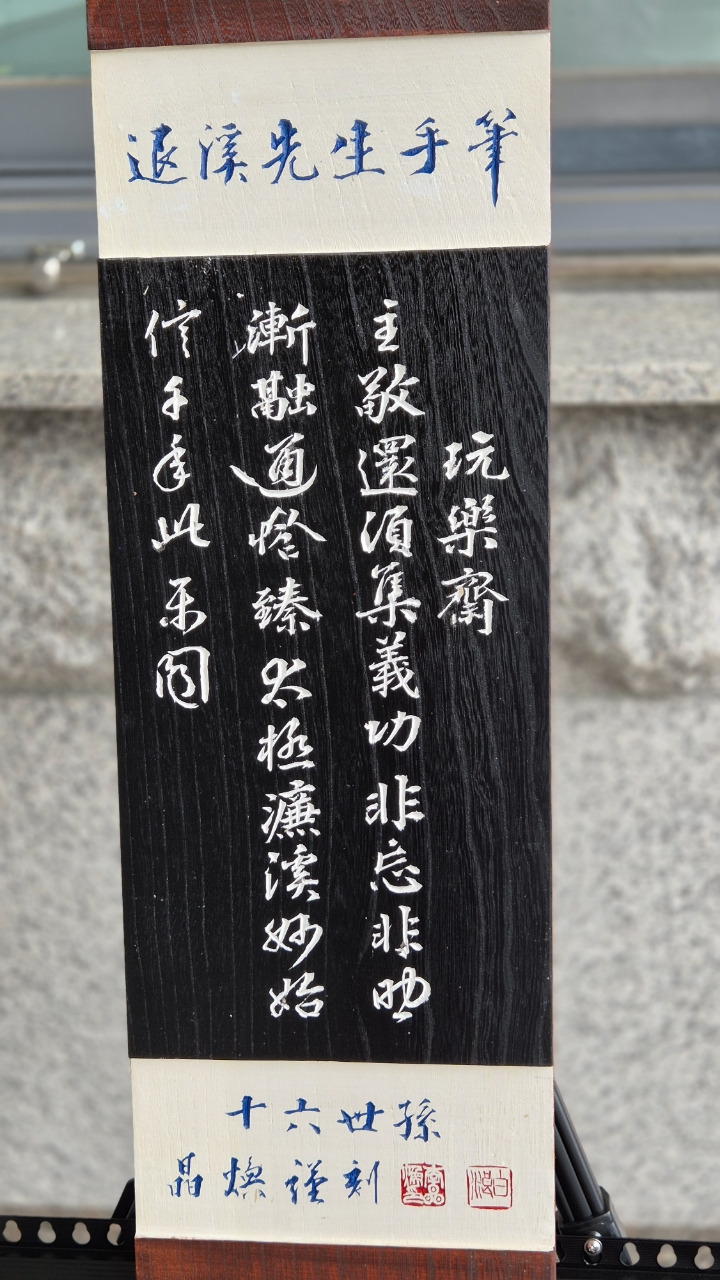 退溪先生手筆
玩樂齋
主敬還須集義功非忘非助
漸融通恰臻太極濂溪妙始
信千年此樂同
十六世孫
晶煥謹刻